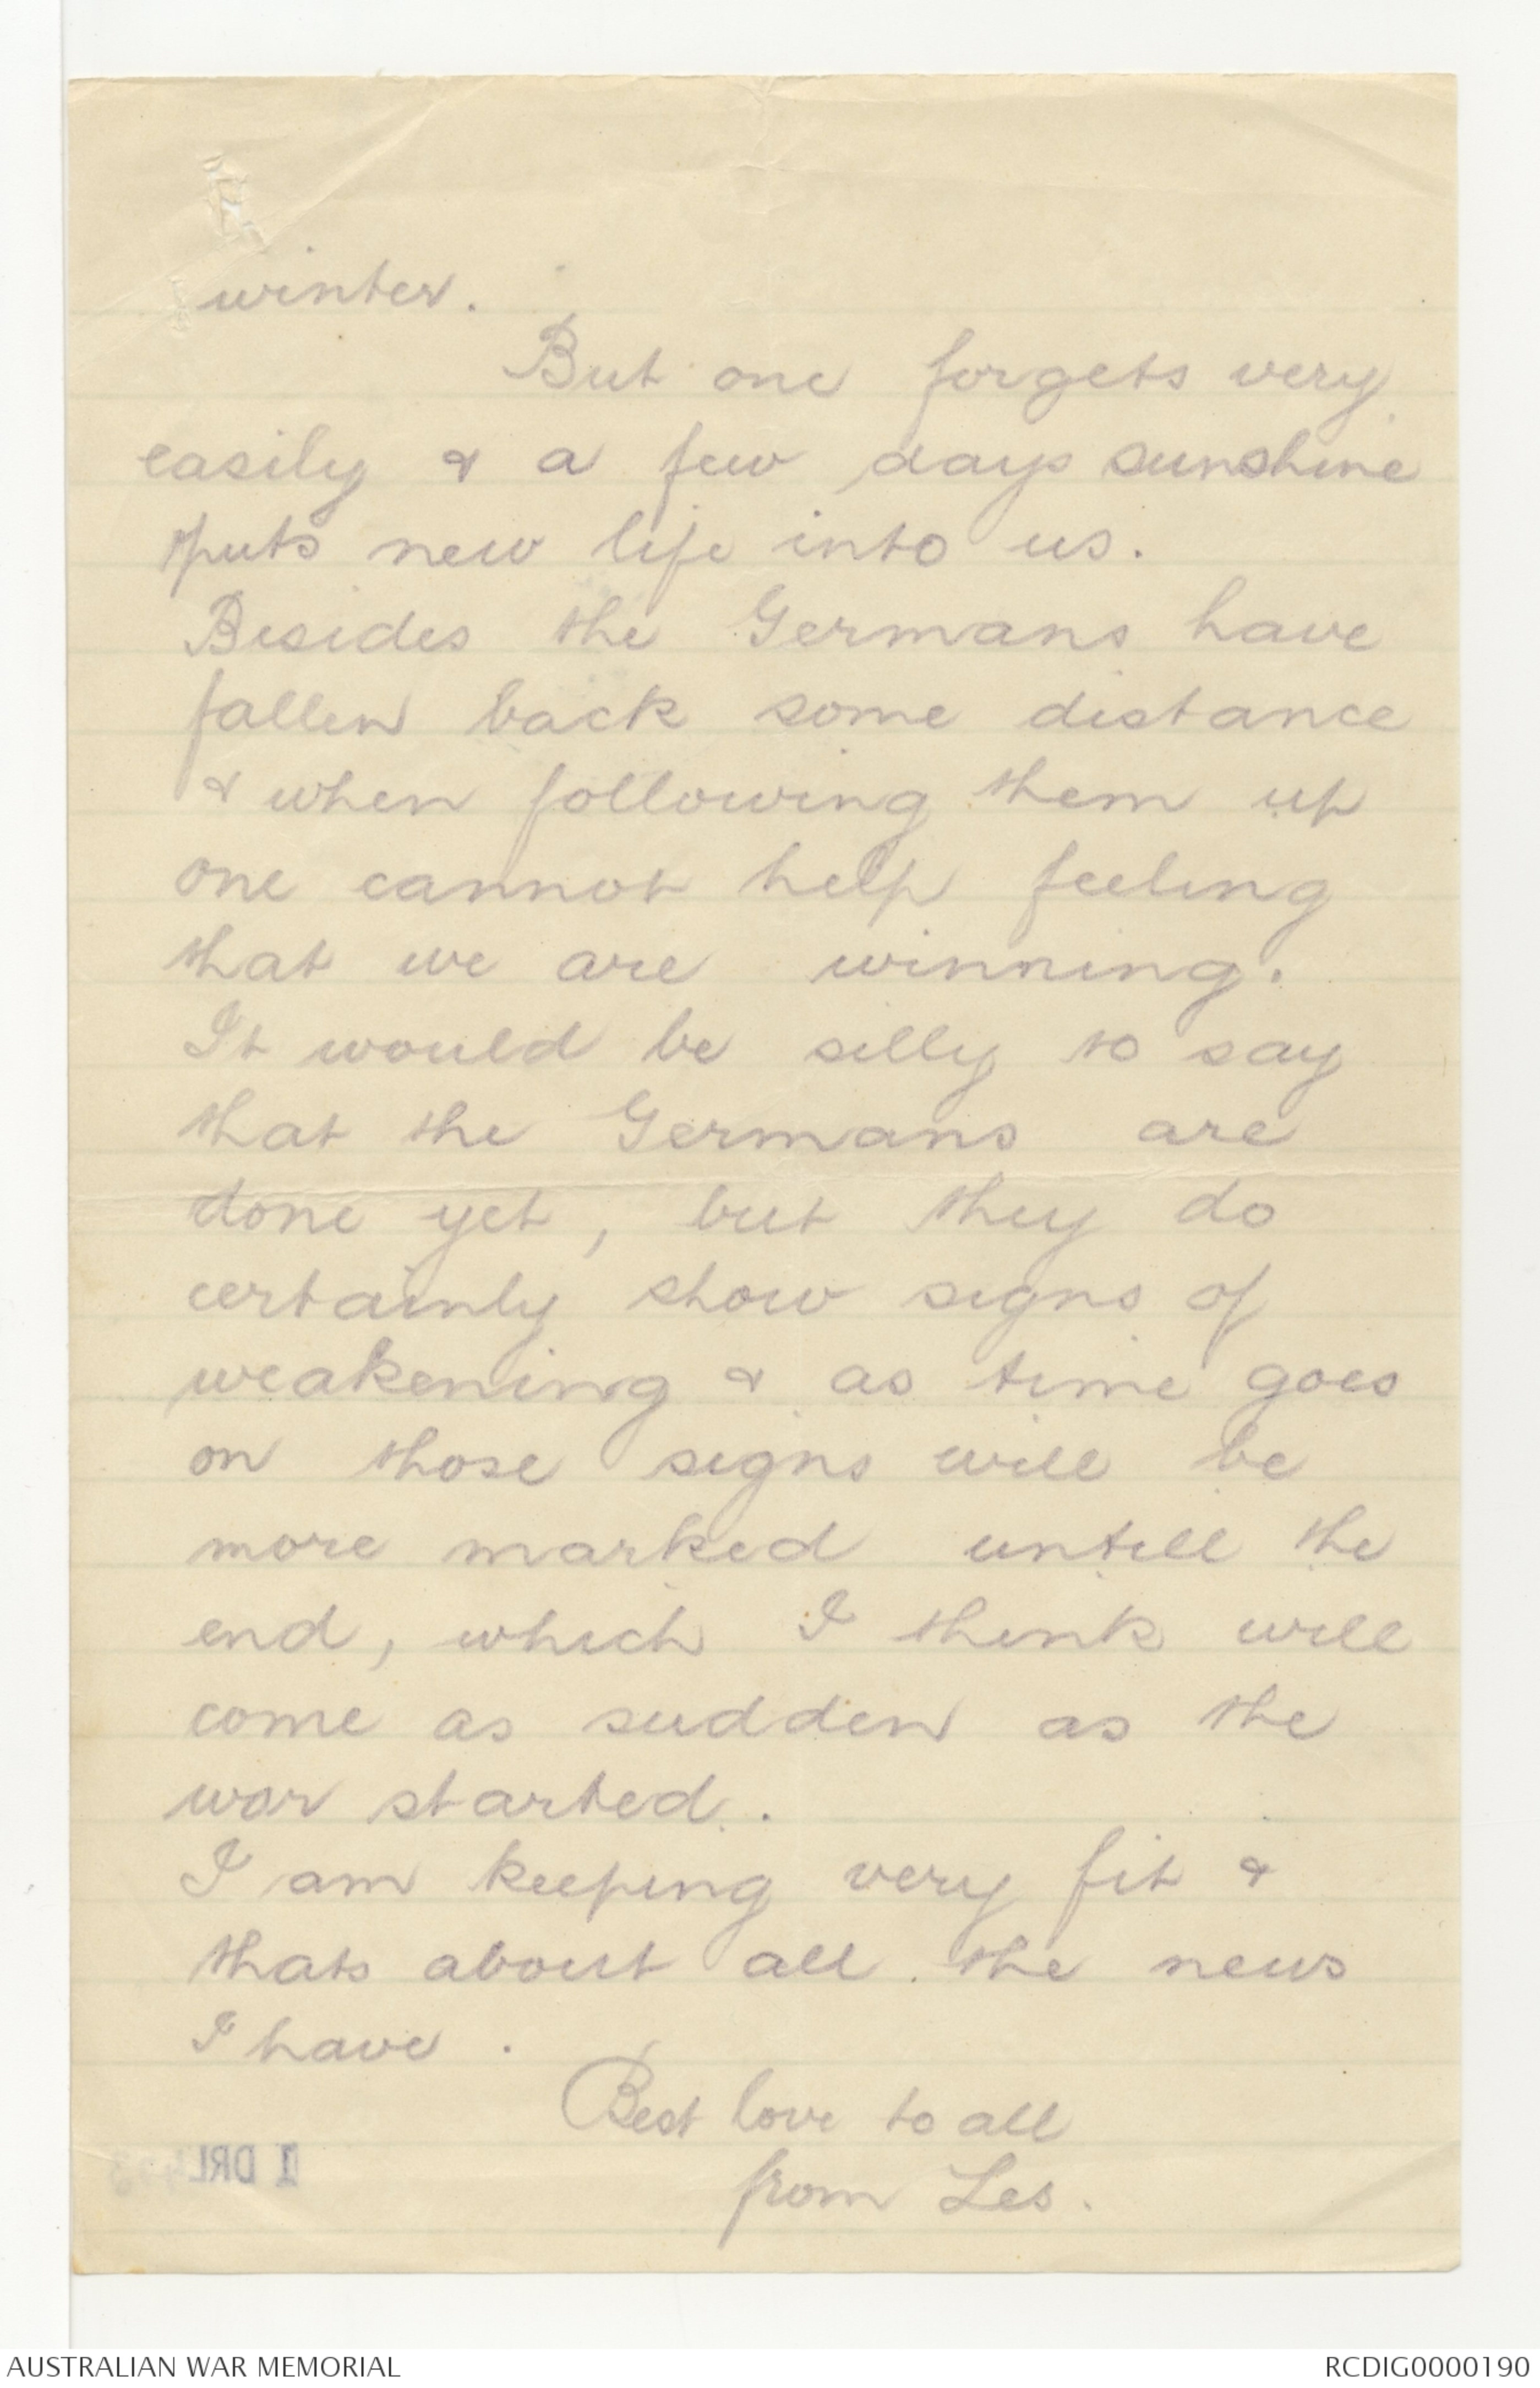 winter.
But one forgets very
easily & a few days sunshine
puts new life into us.
Besides the Germans have
fallen back some distance
& when following them up
one cannot help feeling
that we are winning.
It would be silly to say
that the Germans are
done yet, but they do
certainly show signs of
weakening & as time goes
on those signs will be
more marked untill the
end, which I think will
come as sudden as the
war started.
I am keeping very fit &
thats about all the news
I have.
Best love to all
from Les.
1 DRL
AUSTRALIAN WAR MEMORIAL
RCDIG0000190